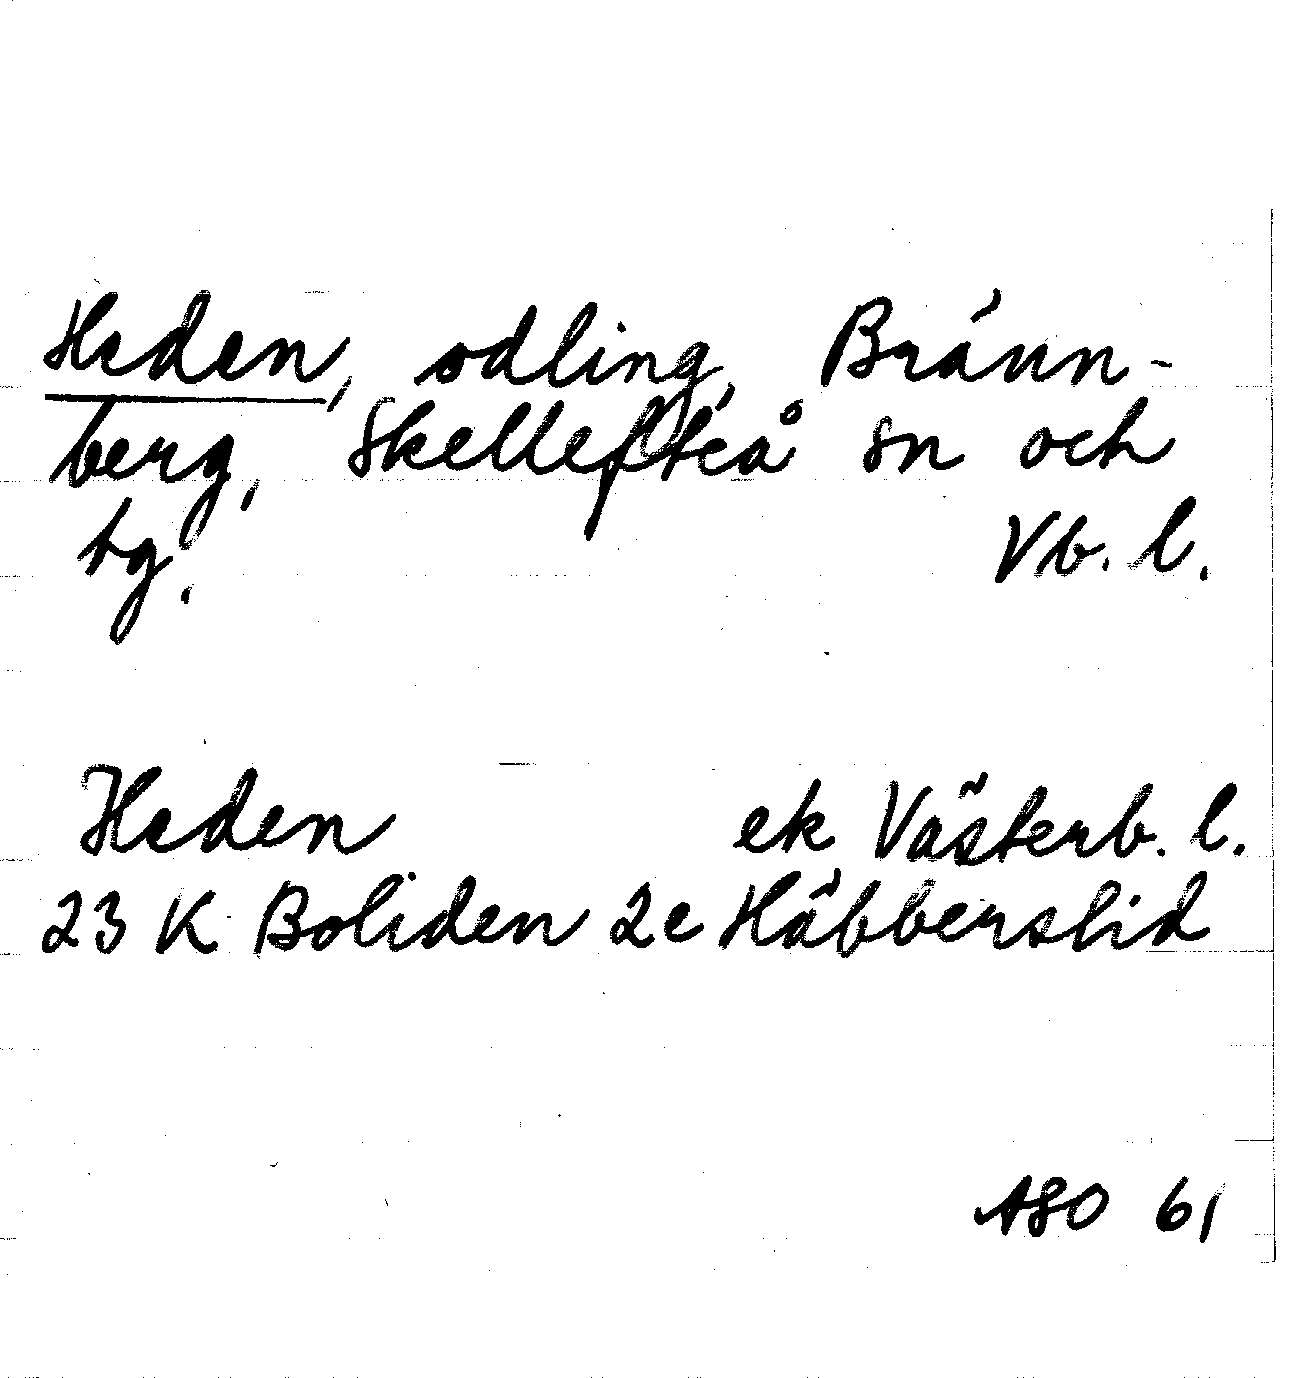 Heden, odling, Bränn-
berg, Skellefteå sn och
tg. Vb. l.
Heden ek Västerb. l.
23 K Boliden 2c Häbberslid
ASO 61